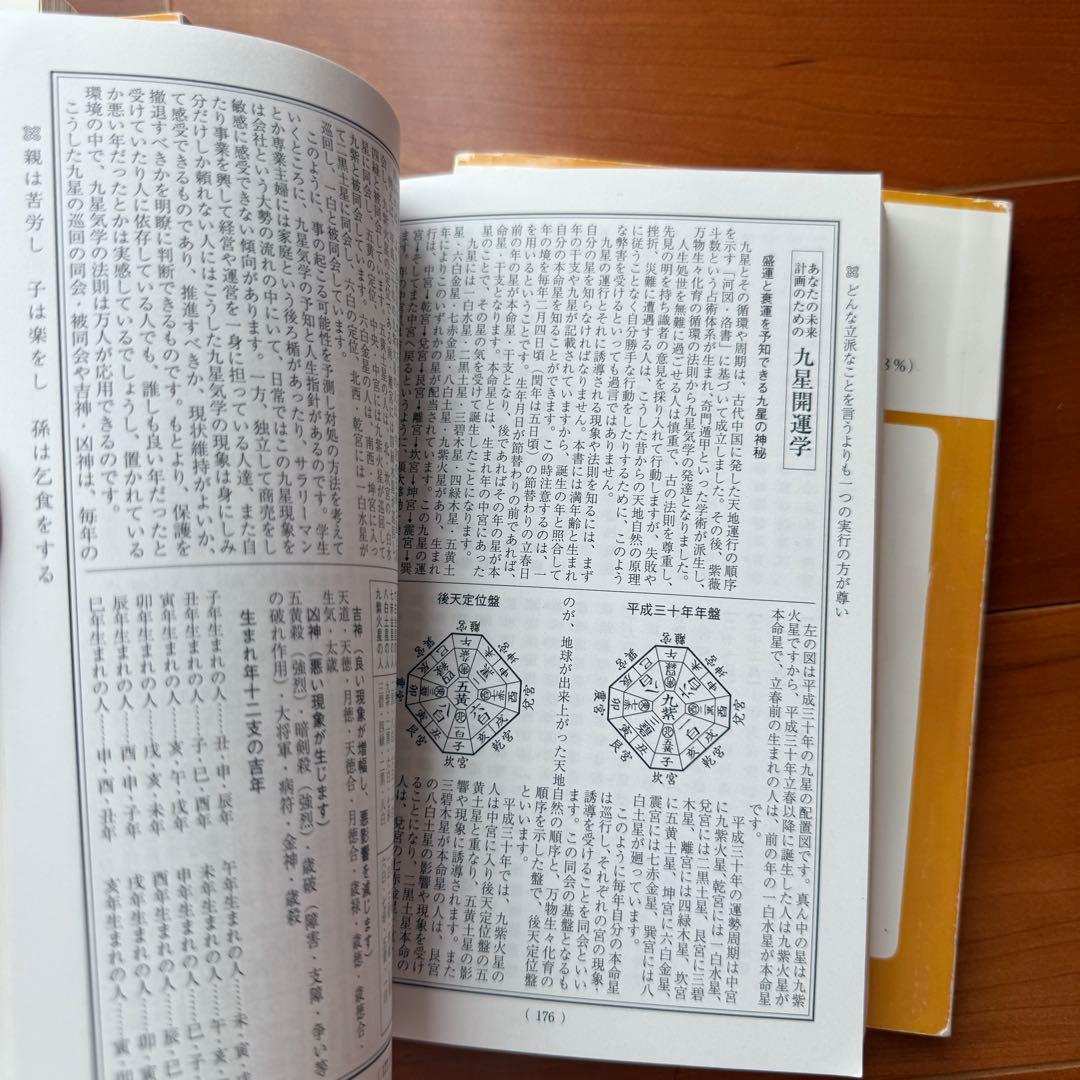 ❈どんな立派なことを言うよりも一つの実行の方が尊い
あなたの未来
計画のための
九星開運学
盛運と衰運を予知できる九星の神秘
九星とその循環や周期は、古代中国に発した天地運行の順序
を示す「河図・洛書」に基づいて成立しました。その後、紫薇
斗数という占術体系が生まれ、奇門遁甲といった学術が派生し、
万物生々化育の循環の法則から九星気学の発達となりました。
人生処世を無難に過ごせる人は慎重で、古の法則を尊重し、
先見の明を持ち識者の意見を採り入れて行動しますが、失敗や
挫折、災難に遭遇する人は、こうした昔からの天地自然の原理
に従うことなく自分勝手な行動をしたりするために、このよう
な弊害を受けるといっても過言ではありません。
九星の運行とそれに誘導される現象や法則を知るには、まず
自分の星を知らなければなりません。本書には満年齢と生まれ
年の干支や九星が記載されていますから、誕生の年と照合して
自分の本命星を知ることができます。この時注意するのは、一
年の境を毎年二月四日頃(閏年は五日頃)の節替わりの立春日
を用いるということです。生年月日が節替わりの前であれば、
前の年の星が本命星・干支となり、後であればその年の星が本
命星・干支となります。本命星とは、生まれ年の中宮にあった
星のことで、その星の気を受けて誕生したことになります。
星・六白金星・七赤金星・八白土星・九紫火星があり、生まれ
年によりこのいずれかの星が配当されています。この九星の運
左の図は平成三十年の九星の配置図です。真ん中の星は九紫
火星ですから、平成三十年立春以降に誕生した人は九紫火星が
本命星で、立春前の生まれの人は、前の年の一白水星が本命星
です。
平成三十年年盤
後天定位盤
平成三十年の運勢周期は中宮
に九紫火星、乾宮には一白水星、
兌宮には二黒土星、艮宮に三碧
木星、離宮には四緑木星、坎宮
に五黄土星、坤宮に六白金星、
震宮には七赤金星、巽宮には八
白土星が廻っています。
このように毎年自分の本命星
は巡行し、それぞれの宮の現象・
誘導を受けることを同会といい
ます。この同会の基盤となるも
のが、地球が出来上がった天地自然の順序と、万物生々化育の
順序を示した盤で、後天定位盤
といいます。
平成三十年では、九紫火星の
人は中宮に入り後天定位盤の五
黄土星と重なり、五黄土星の影
響や現象に誘導されます。また
三碧木星が本命星の人は、艮宮
の八白土星の影響や現象を受け
ることになり、二黒土星本命の
(176)
3%)
て二黒土星に同会し、六白の定位、北西・乾宮には一白水星が
巡回し、一白と被同会しています。
このように、事の起こる可能性を予測し対処の方法を考えて
いくところに、九星気学の予知と人生指針があるのです。学生
とか専業主婦には家庭という後ろ楯があったり、サラリーマン
は会社という大勢の流れの中にいて、日常ではこの九星現象を
敏感に感受できない傾向があります。一方、独立して商売をし
たり事業を興して経営や運営を一身に担っている人達、また自
分だけしか頼れない人にはこうした九星気学の現象は身にしみ
て感受できるものであり、推進すべきか、現状維持がよいか、
撤退すべきかを明瞭に判断できるものです。もとより、保護を
受けていたり人に依存している人でも、誰しも良い年だったと
か悪い年だったとかは実感しているでしょうし、置かれている
環境の中で、九星気学の法則は万人が応用できるのです。
こうした九星の巡回の同会・被同会や吉神・凶神は、毎年の
❈親は苦労し 子は楽をし 孫は乞食をする
吉神(良い現象が増幅し、悪影響を減じます)
天道・天徳・月徳・天徳合・月徳合・歳禄・歳徳・歳徳合・
生気・太歳
凶神(悪い現象が生じます)
五黄殺(強烈)・暗剣殺(強烈)・歳破(障害・支障・争い等
の破れ作用)・大将軍・病符・金神・歳殺
生まれ年十二支の吉年
子年生まれの人……丑・申・辰年
丑年生まれの人……子・巳・酉年
寅年生まれの人……亥・午・戌年
卯年生まれの人……戌・亥・未年
辰年生まれの人……酉・申・子年
巳年生まれの人……申・酉・丑年
午年生まれの人……未・寅・
未年生まれの人……午・亥・
申年生まれの人……巳・子・
酉年生まれの人……辰・巳・
戌年生まれの人……卯・寅・
亥年生まれの人……寅・卯